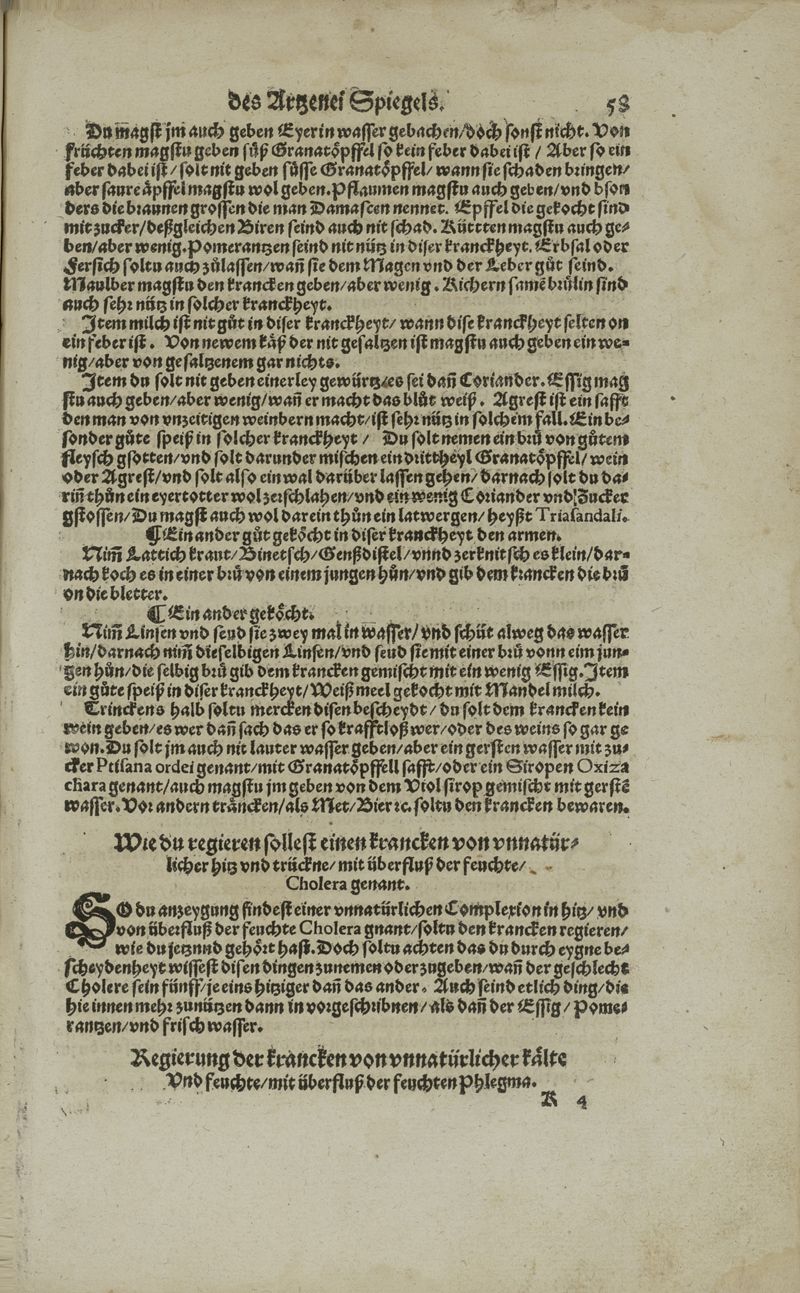 des Artzenei Spiegels. 58
Du magst jm auch geben Eyer in wasser gebachen/doch sonst nicht. Von
früchten magstu geben süß Granatöpffel so kein feber dabei ist / Aber so ein
feber dabei ist / solt nit geben süsse Granatöpffel/ wann sie schaden bringen/
aber saure äpffel magstu wol geben. Pflaumen magstu auch geben/vnd bson
ders die braunen grossen die man Damascen nennet. Epffel die gekocht sind
mit zucker/deßgleichen Biren seind auch nit schad. Küttten magstu auch ge⸗
ben/aber wenig. Pomerantzen seind nit nütz in diser kranckheyt. Erbsal oder
Fersich soltu auch zůlassen/wañ sie dem Magen vnd der Leber gůt seind.
Maulber magstu den krancken geben/aber wenig. Kichern samē brůlin sind
auch sehr nütz in solcher kranckheyt.
Item milch ist nit gůt in diser kranckheyt/ wann dise kranckheyt selten on
ein feber ist. Von newem käß der nit gesaltzen ist magstu auch geben ein we⸗
nig/aber von gesaltzenem gar nichts.
Item du solt nit geben einerley gewürtz/es sei dañ Coriander. Essig mag
stu auch geben/aber wenig/wañ er macht das blůt weiß. Agrest ist ein safft
den man von vnzeitigen weinbern macht/ist sehr nütz in solchem fall. Ein be⸗
sonder gůte speiß in solcher kranckheyt / Du solt nemen ein brů von gůtem
fleysch gsotten/vnd solt darunder mischen ein drittheyl Granatöpffel/ wein
oder Agrest/vnd solt also ein wal darüber lassen gehen/darnach solt du da⸗
riñ thůn ein eyertotter wol zerschlahen/vnd ein wenig Coriander vnd Zucker
gstossen/Du magst auch wol darein thůn ein latwergen/heyßt Triasandali.
¶ Ein ander gůt geköcht in diser kranckheyt den armen.
Nim̃ Lattich kraut/Binetsch/Genßdistel/vnnd zerknitsch es klein/dar⸗
nach koch es in einer brů von einem jungen hůn/vnd gib dem krancken die brů
on die bletter.
¶ Ein ander geköcht.
Nim̃ Linsen vnd seud sie zwey mal in wasser/vnd schüt alweg das wasser
hin/darnach nim̃ dieselbigen Linsen/vnd seud sie mit einer brů vonn eim jun⸗
gen hůn/die selbig brů gib dem krancken gemischt mit ein wenig Essig. Item
ein gůte speiß in diser kranckheyt/Weiß meel gekocht mit Mandel milch.
Trinckens halb soltu mercken disen bescheydt/du solt dem krancken kein
wein geben/es wer dañ sach das er so krafftloß wer/oder des weins so gar ge
won. Du solt jm auch nit lauter wasser geben/aber ein gersten wasser mit zu⸗
cker Ptisana ordei genant/mit Granatöpffell safft/oder ein Siropen Oxiza
chara genant/auch magstu jm geben von dem Viol sirop gemischt mit gerstē
wasser. Vor andern träncken/als Met/Bier ꝛc. soltu den krancken bewaren.
Wie du regieren sollest einen krancken von vnnatür⸗
licher hitz vnd trückne/mit überfluß der feuchte/
Cholera genant.
SO du anzeygung findest einer vnnatürlichen Complexion in hitz/ vnd
von überfluß der feuchte Cholera gnant/soltu den krancken regieren/
wie du jetzund gehört hast. Doch soltu achten das du durch eygne be⸗
scheydenheyt wissest disen dingen zunemen oder zugeben/wañ der geschlecht
Cholere sein fünff/je eins hitziger dañ das ander. Auch seind etlich ding/die
hie innen mehr zunützen dann in vorgeschribnen/als dañ der Essig/Pome⸗
rantzen/vnd frisch wasser.
Regierung der krancken von vnnatürlicher kälte
Vnd feuchte/mit überfluß der feuchten Phlegma.
K 4